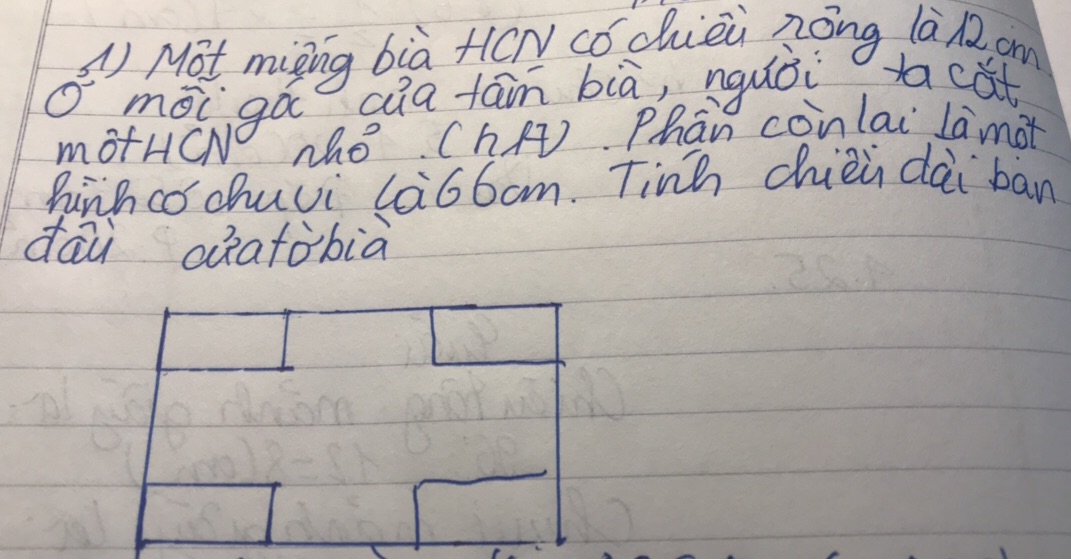 1) Một miếng bià HCN có chiều rộng là 12 cm
Ở mỗi góc của tấm bià, người ta cắt
một HCN nhỏ. (h A). Phần còn lại là một
hình có chu vi là 66cm. Tính chiều dài ban
đầu của tờ bià